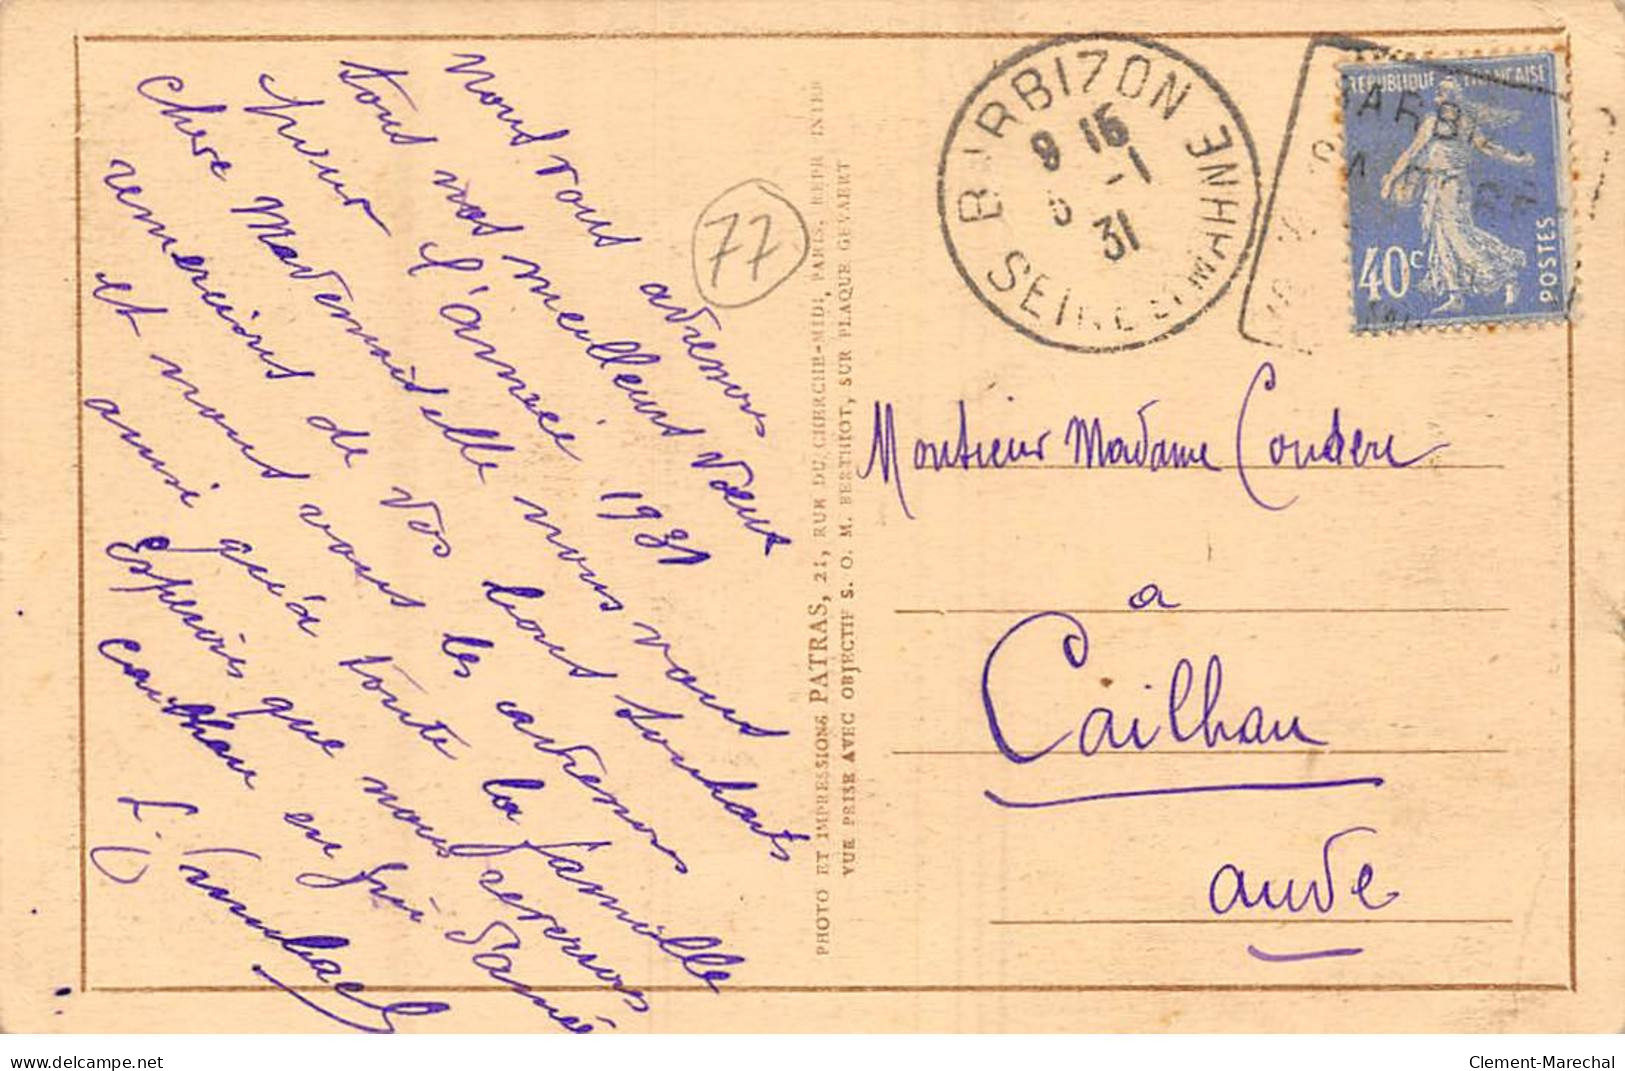 nous vous adressons
tous nos meilleurs vœux
pour l'année 1931
chère Mademoiselle nous vous
remercions de vos bons souhaits
et nous vous les adressons
ainsi qu'à toute la famille
Espérons que nous reverrons
Cailhau en fin d'année
77
PHOTO ET IMPRESSIONS PATRAS, 21, RUE DU CHERCHE-MIDI, PARIS, REPR INTER
VUE PRISE AVEC OBJECTIF S. O. M. BERTHIOT, SUR PLAQUE GEVAERT
BARBIZON
SEINE ET MARNE
9 15
-1
31
REPUBLIQUE FRANÇAISE
40c
POSTES
Monsieur Madame
a
Cailhau
aude
www.delcampe.net
Clement-Marechal